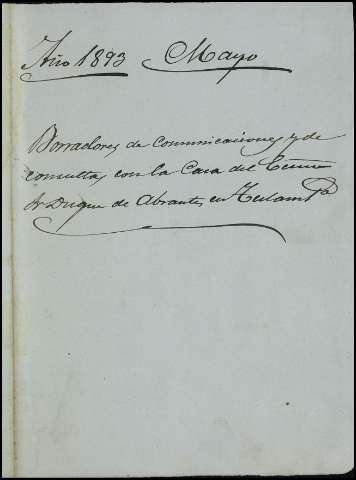 Año 1893 Mayo
Borradores de comunicaciones y de
consultas con la Casa del Exmo
Sr Duque de Abrantes en